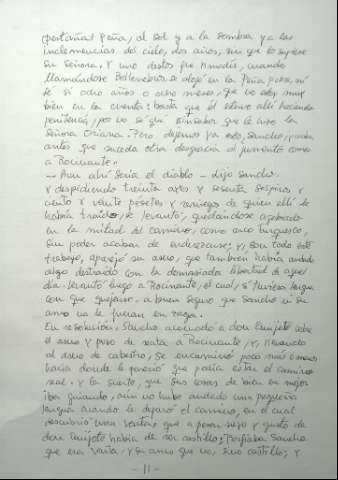 penitencia peña, al sol y a la sombra y a las
inclemencias del cielo, dos años, sin que lo supiese
su Señora. Y uno destos fue Amadís, cuando
llamándose Beltenebros se alojó en la Peña pobre, ni
sé si ocho años o ocho meses, que no estoy muy
bien en la cuenta: basta que él estuvo allí haciendo
penitencia, por no sé qué sinsabor que le hizo la
Señora Oriana. Pero dejemos ya esto, Sancho, y acaba
antes que suceda otra desgracia al jumento como
a Rocinante.
—Aun ahí sería el diablo— dijo Sancho.
Y despidiendo treinta ayes y sesenta sospiros y
ciento y veinte pésetes y reniegos de quien allí le
había traído, se levantó, quedándose agobiado
en la mitad del camino, como arco turquesco,
sin poder acabar de enderezarse; y, con todo este
trabajo, aparejó su asno, que también había andado
algo destraído con la demasiada libertad de aquel
día. Levantó luego a Rocinante, el cual, si tuviera lengua
con que quejarse, a buen seguro que Sancho ni su
amo no le fueran en zaga.
En resolución, Sancho acomodó a don Quijote sobre
el asno y puso de reata a Rocinante, y, llevando
al asno de cabestro, se encaminó poco más o menos
hacia donde le pareció que podía estar el camino
real. Y la suerte, que sus cosas de bien en mejor
iba guiando, aún no hubo andado una pequeña
legua cuando le deparó el camino, en el cual
descubrió una venta, que a pesar suyo y gusto de
don Quijote había de ser castillo; Porfiaba Sancho
que era venta, y su amo que no, sino castillo; y
- 11 -